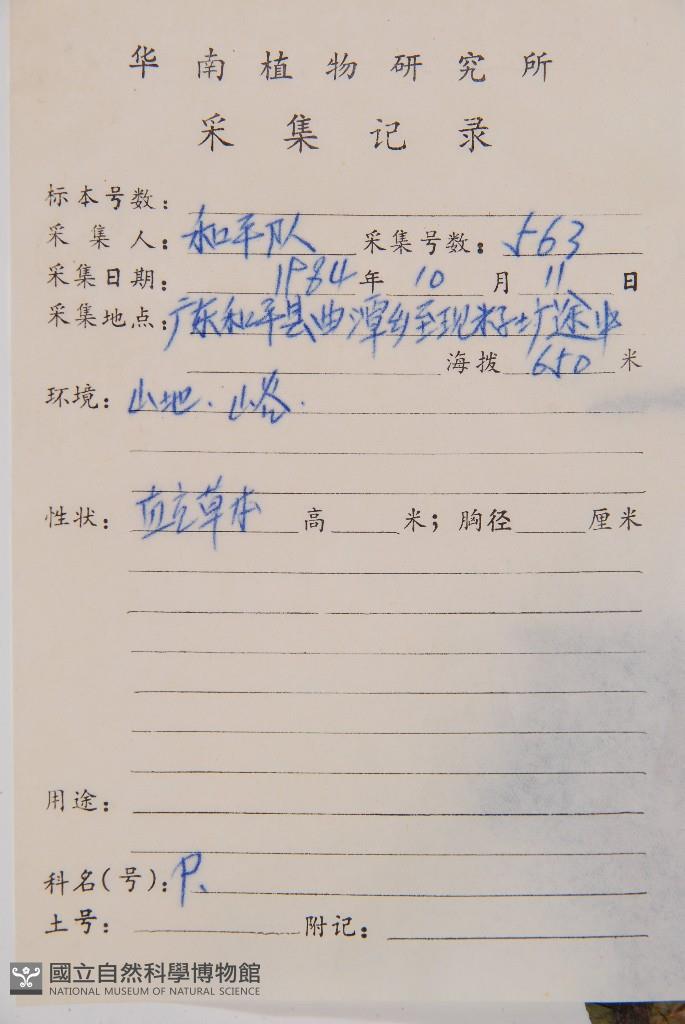 华南植物研究所
采集记录
标本号数:
采集人: 和平队 采集号数: 563
采集日期: 1984年 10月 11日
采集地点: 广东和平县曲潭乡至现籽圹途中
海拨 650 米
环境: 山地. 山谷.
性状: 直立草本 高 米; 胸径 厘米
用途:
科名(号): P.
土号: 附记:
國立自然科學博物館
NATIONAL MUSEUM OF NATURAL SCIENCE